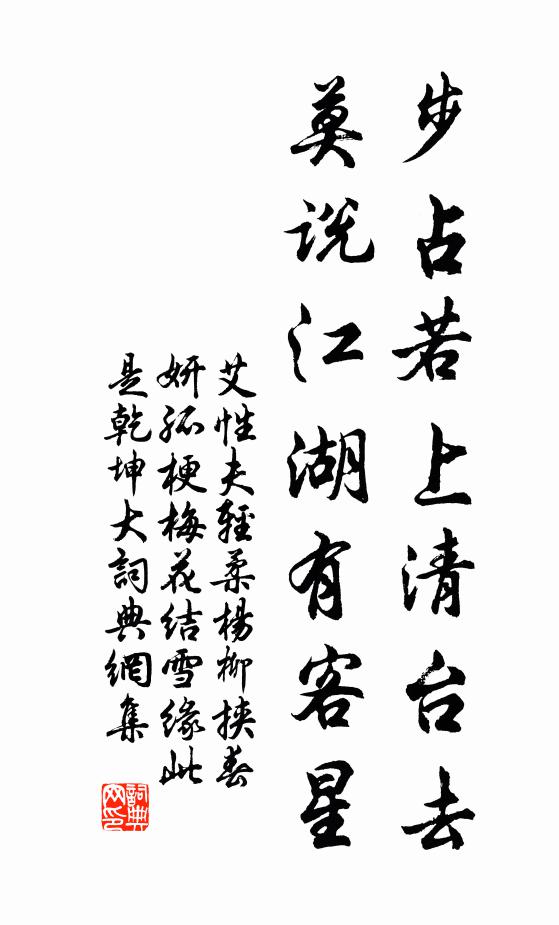 步占若上清台去
莫说江湖有客星
艾性夫輕柔楊柳挾春
妍孤梗梅花結雪緣此
是乾坤大詞典網集
詞典网印